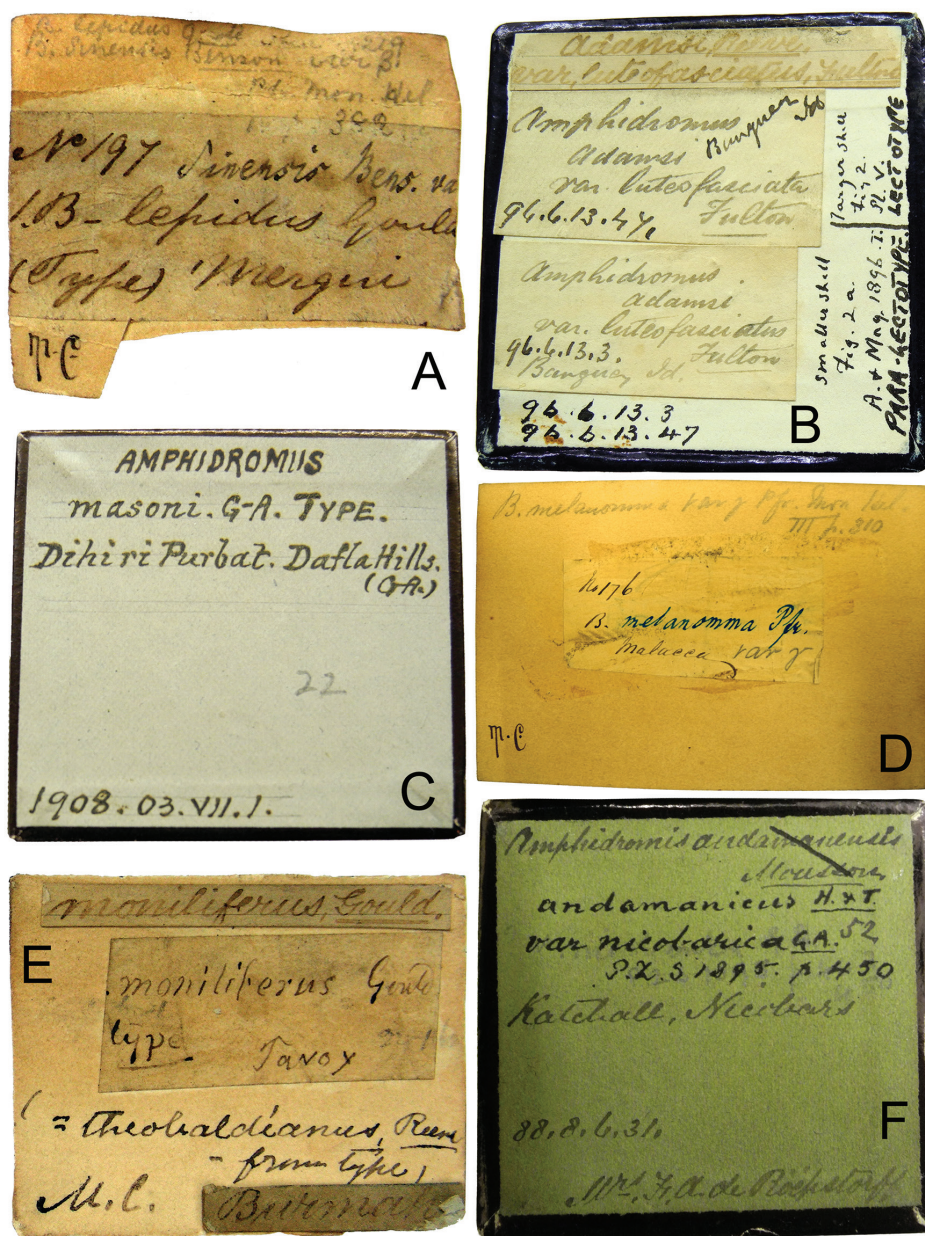 A. lepidus Gould
B. sinensis Benson var β
Pfr. Mon. Hel
392.
No 197 Sinensis Bens. va
1.B – lepidus Goula
(Type) Mergui
M.C.
A
Adamsi, Reeve.
var, luteofasciatus, Fulton
Amphidromus
Adamsi Banguey Id
var. luteofasciata
96.6.13.47, Fulton
Amphidromus
adamsi
var. luteofasciatus
96.6.13.3. Fulton
Banguey Id.
96.6.13.3
96.6.13.47
smaller shell
Fig. 2 a.
larger shell
Fig 2.
A. & Mag. 1896. I. Pl. V.
PARA-LECTOTYPE, LECTOTYPE
B
AMPHIDROMUS
masoni. G-A. TYPE.
Dihiri Purbat. Dafla Hills.
(G-A.)
22
1908.03.VII.1.
C
B. melanomma var γ Pfr. Mon Hel.
III p. 310
No 176
B. melanomma Pfr.
Malacca var γ
M.C
D
moniliferus, Gould.
moniliferus Gould
type
Tavoy
( = theobaldianus, Reeve
- from type)
M.C. Burmah
E
Amphidromis andamanensis
Mousson
andamanicus H. & T.
var nicobarica G.A. 52
P.Z.S 1895. p. 450
Katchall, Nicobars
88.8.6.31.
Mrs. F. A. de Röepstorff
F